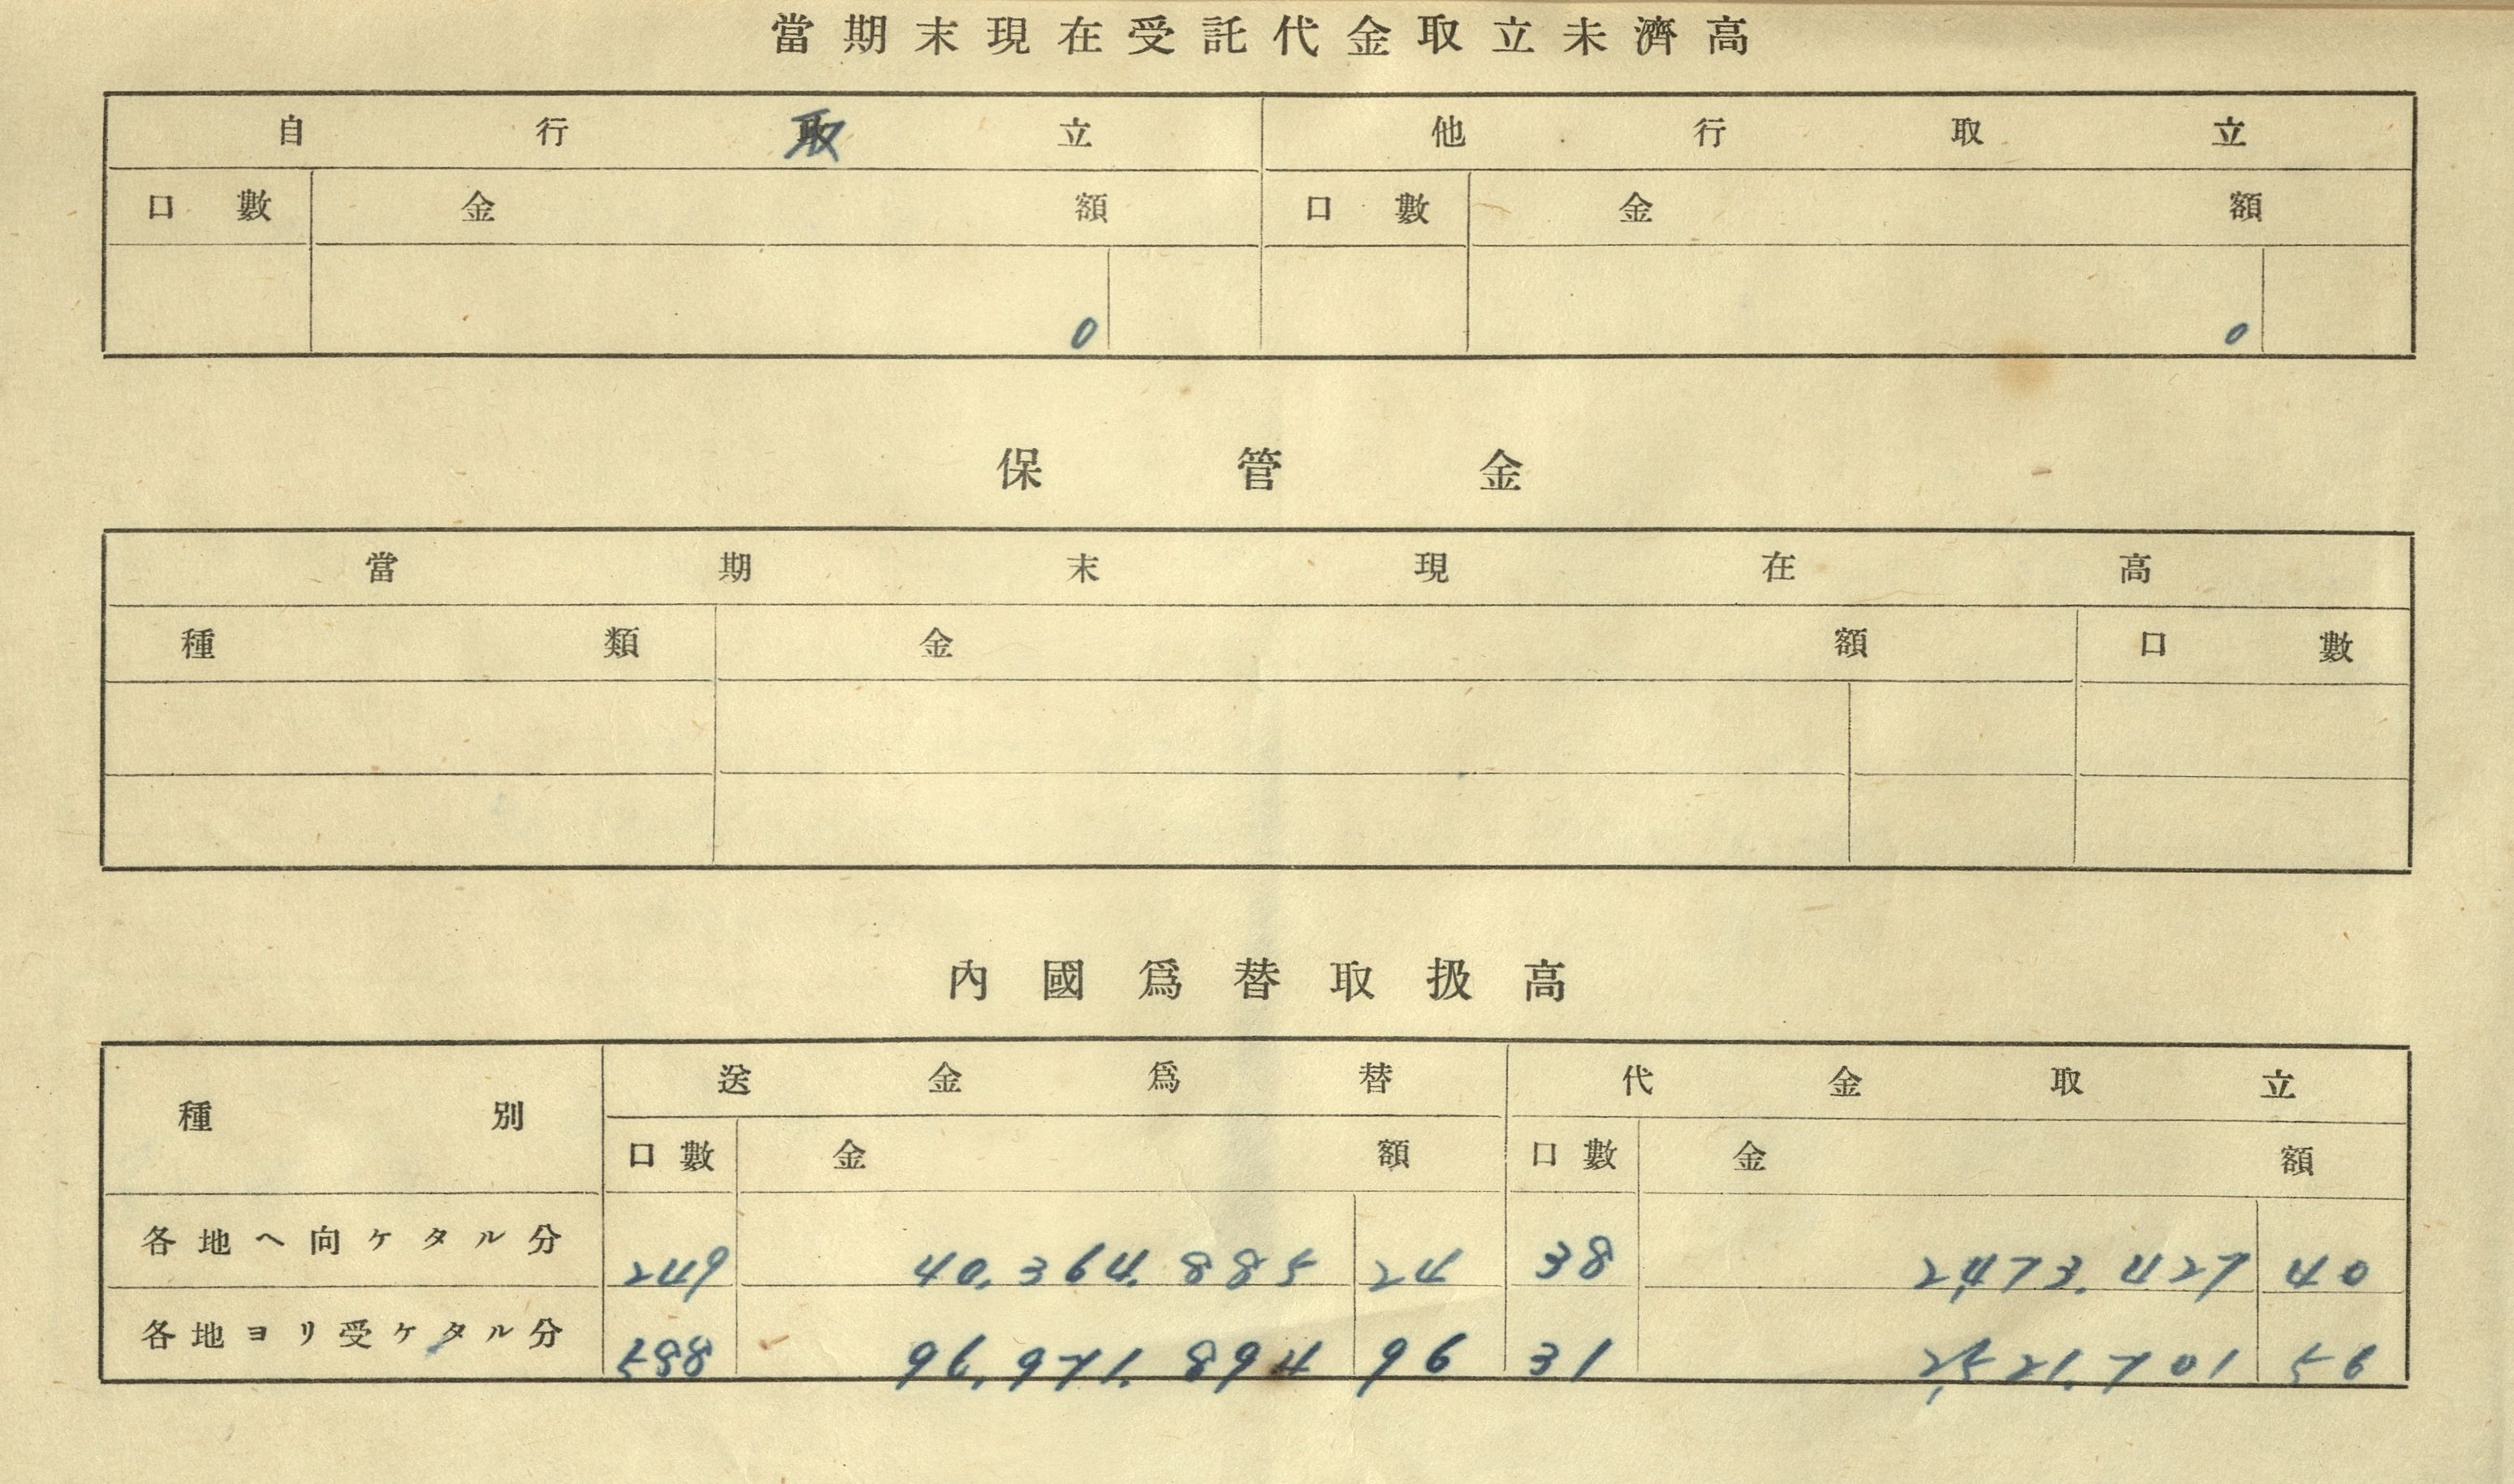 當期末現在受託代金取立未濟高
自行取立 他行取立
口數 金額 口數 金額
0 0
保管金
當期末現在高
種類 金額 口數
內國爲替取扱高
種別 送金爲替 代金取立
口數 金額 口數 金額
各地ヘ向ケタル分 249 40,364,885 24 38 2,473,427 40
各地ヨリ受ケタル分 588 31 2,521,701 56